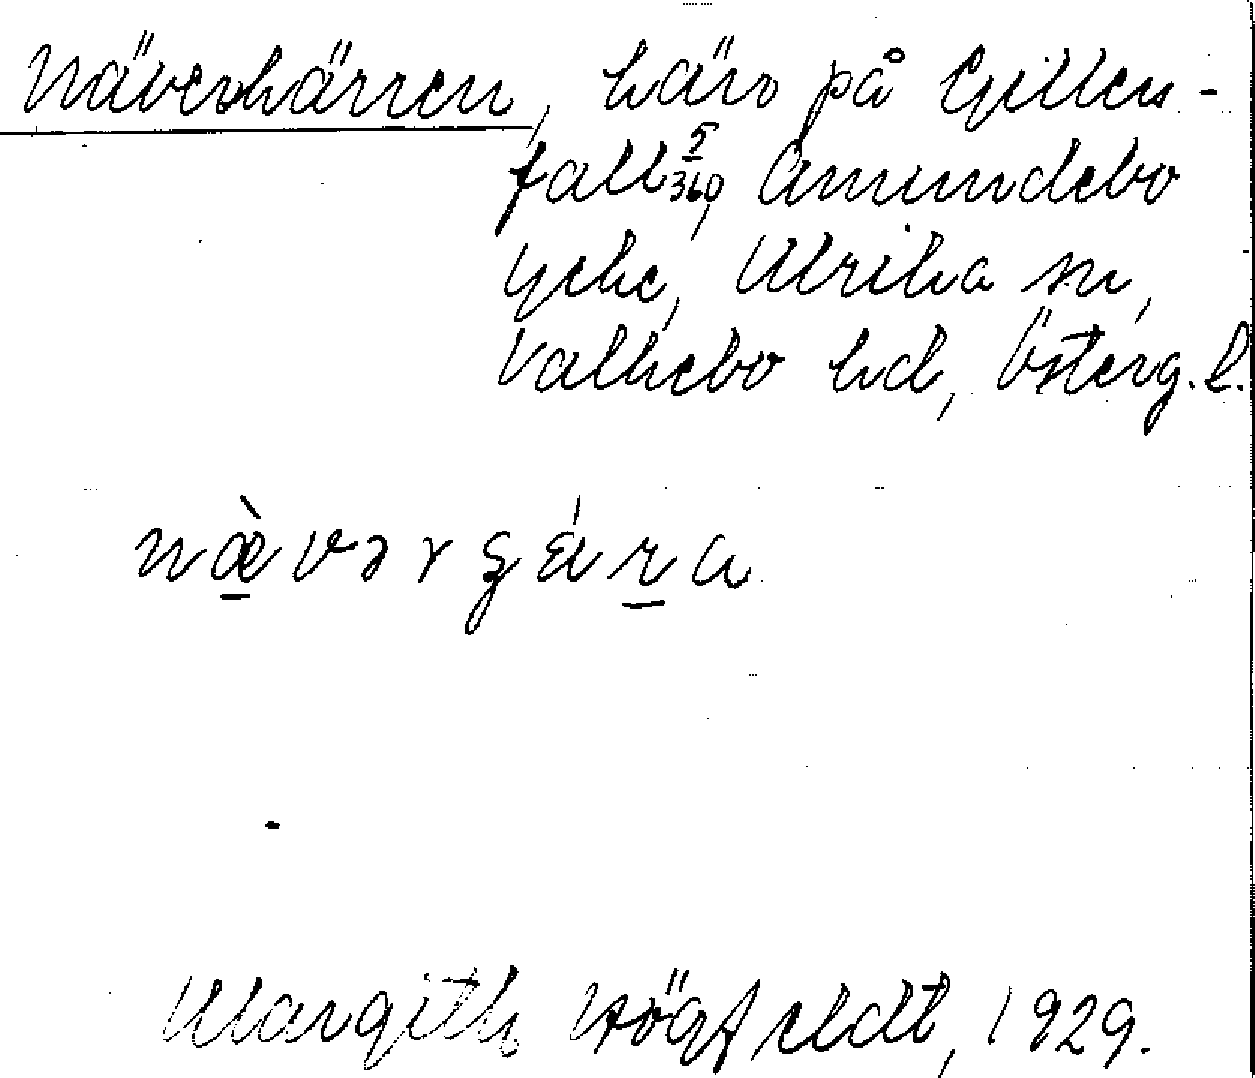 Näverkärren, kärr på Gillers-
fall 5/360, Amundebo
ycke, Ulrika sn,
Valkebo hd, Österg. l.
nævərʂæra
Margith Högfeldt, 1929.